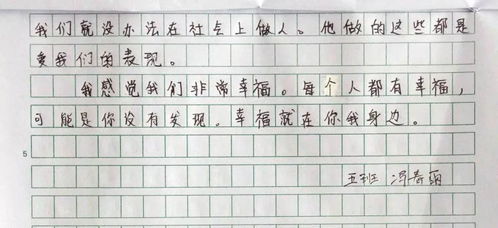 我们就没办法在社会上做人。他做的这些都是
爱我们的表现。
我感觉我们非常幸福。每个人都有幸福，
可能是你没有发现，幸福就在你我身边。
5
五班 冯奇丽